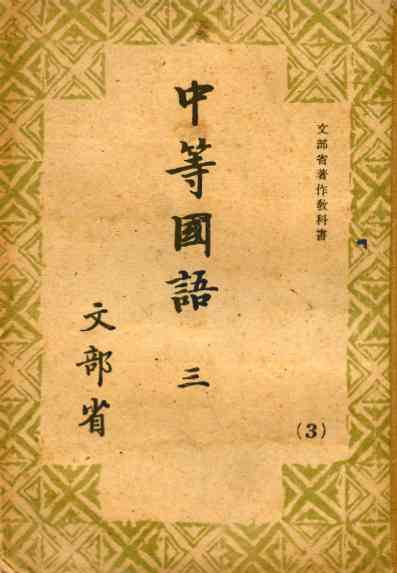 文部省著作教科書
中等國語 三
文部省
(3)